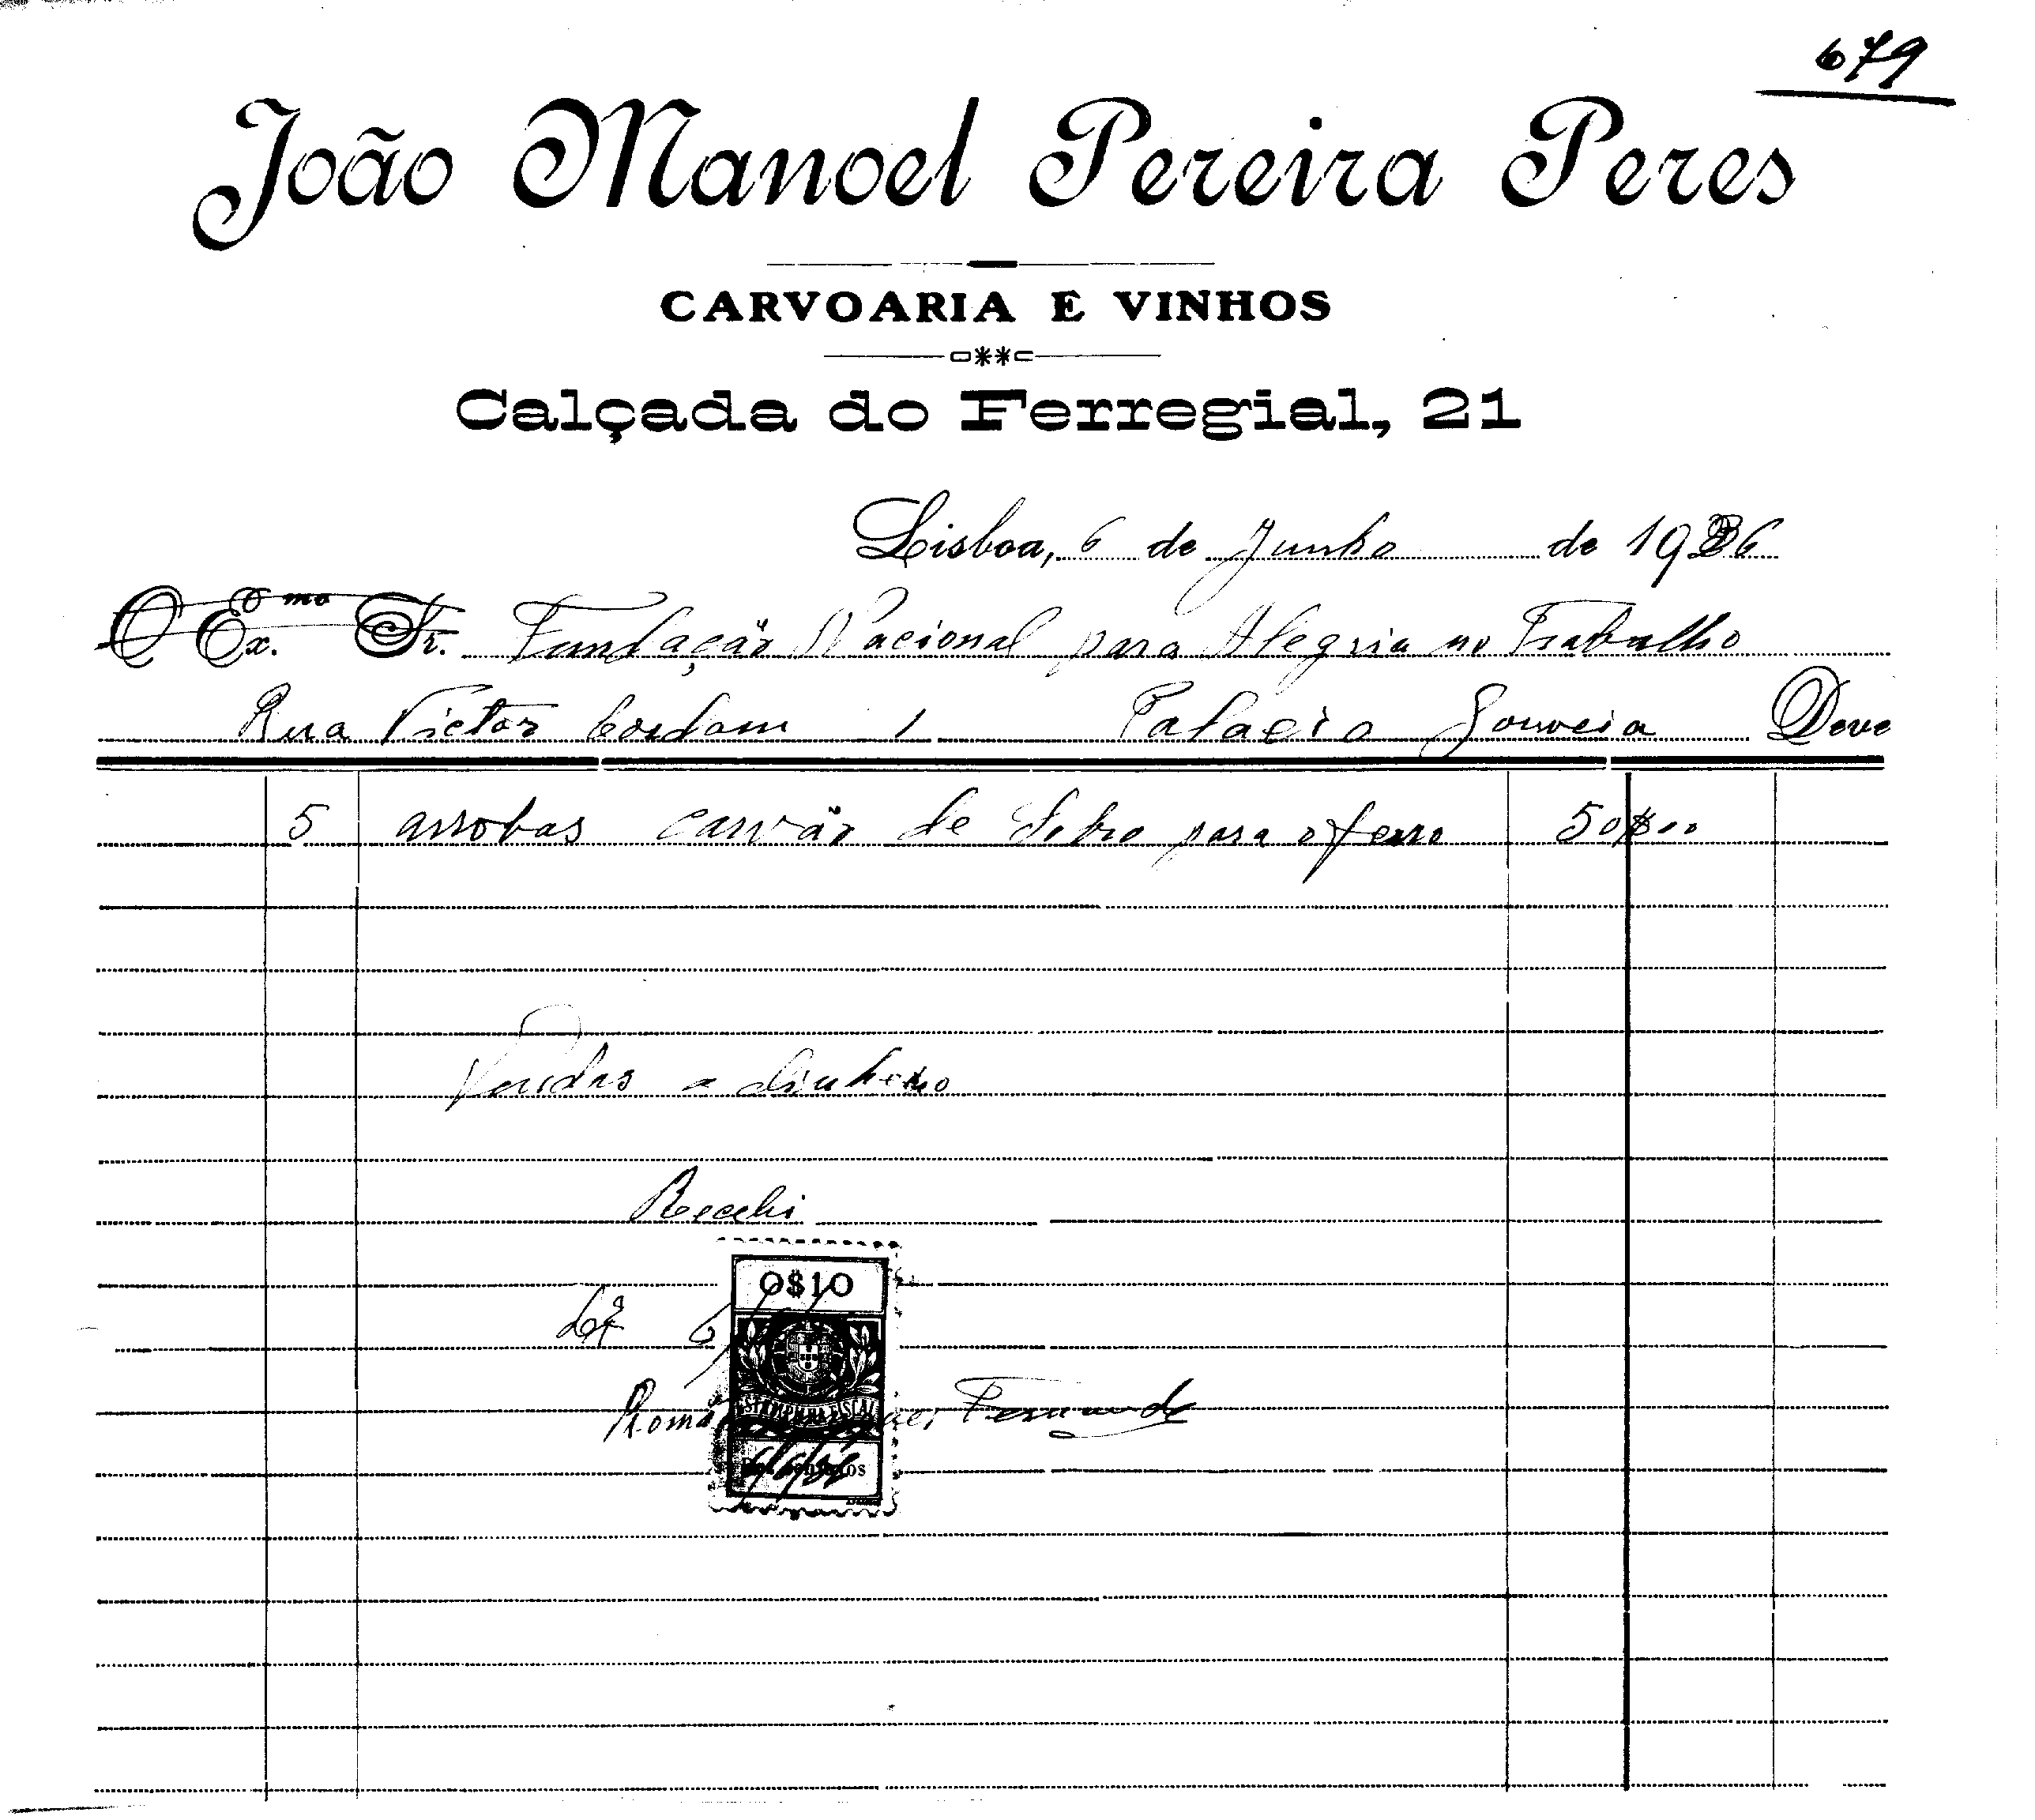 679
João Manoel Pereira Peres
CARVOARIA E VINHOS
Calçada do Ferregial, 21
Lisboa, 6 de Junho de 1936
O Ex.mo Sr. Fundação Nacional para Alegria no Trabalho
Rua Victor Cordom 1 Palacio Gouveia Deve
5 arrobas carvão de Sobro para o ferro 50$00
Vendas a dinheiro
Recebi
0$10
Lxª 6
ESTAMPILHA FISCAL
Fernandes
6/6/36